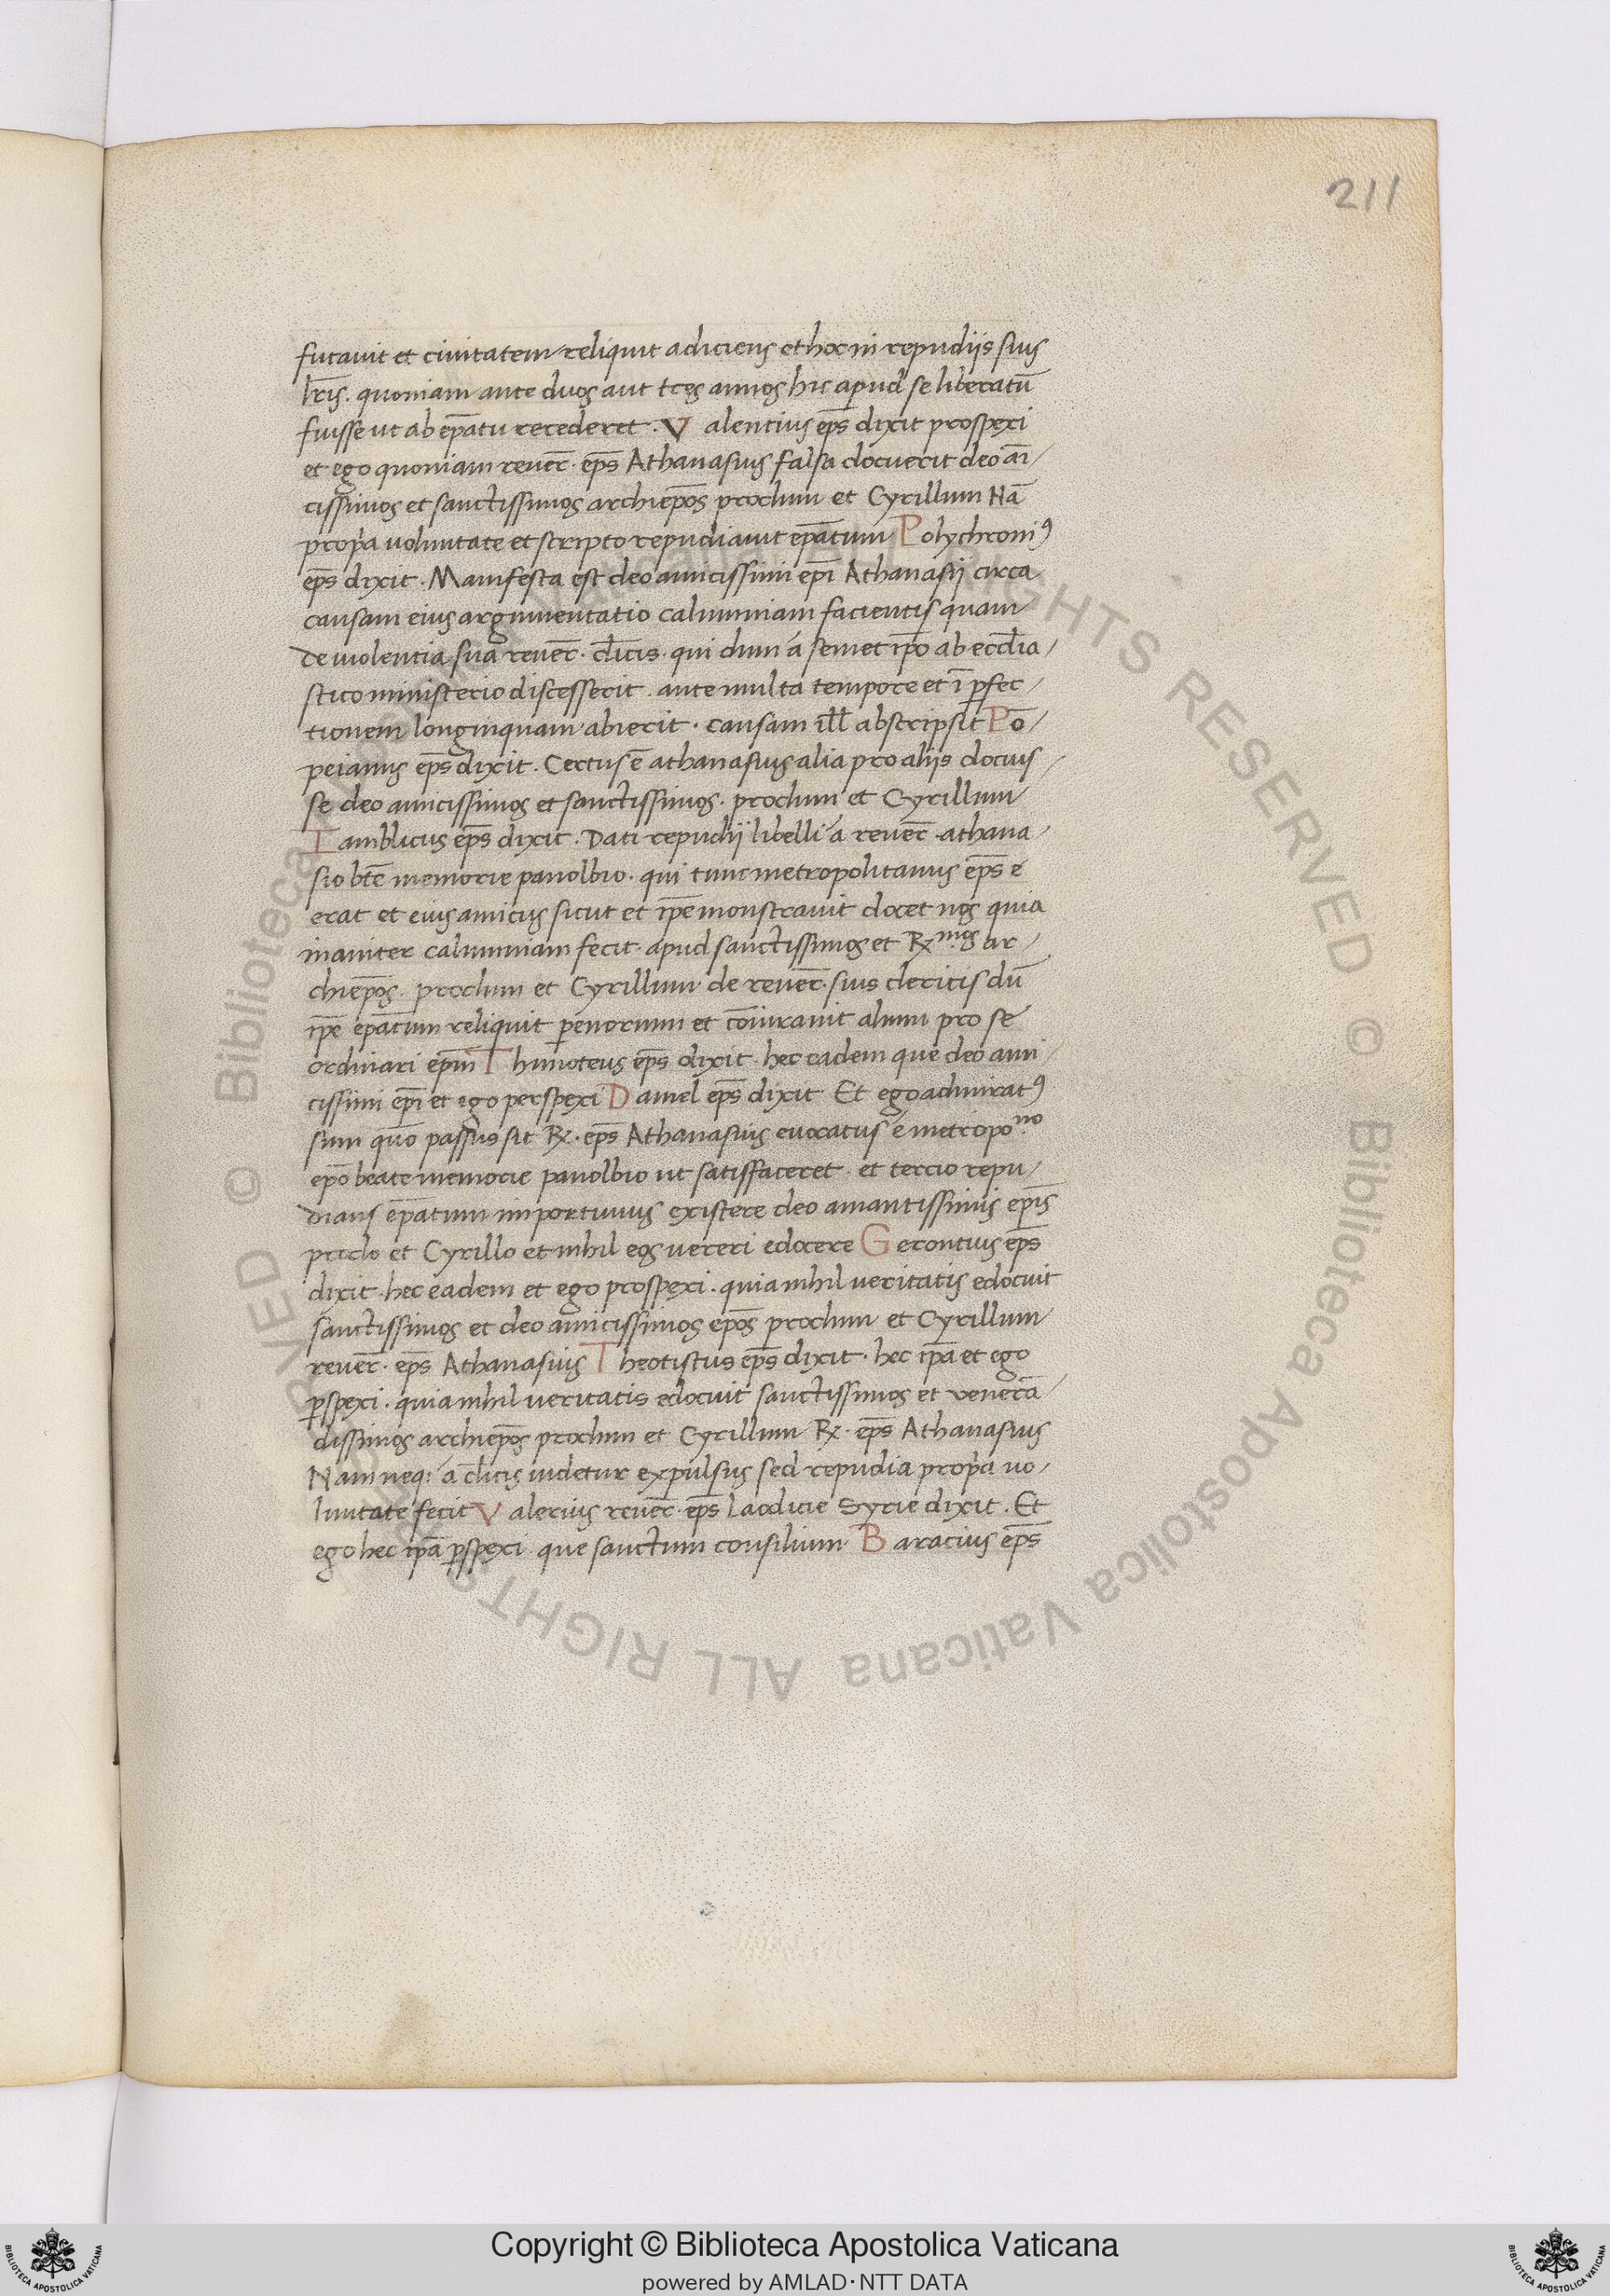 211
futauit et ciuitatem reliquit adiciens et hoc in repudiis suis
lr̄is. quoniam ante duos aut tres annos hic apud se liberatū
fuisse ut ab ep̄atu recederet. Valentius ep̄s dixit prospexi
et ego quoniam reuer̄. ep̄s Athanasius falsa docuerit deo am̄i/
cissimos et sanctissimos archiep̄os proclum et Cyrillum Nā
prop̄a uoluntate et scripto repudiauit ep̄atum Polychroniꝰ
ep̄s dixit. Manifesta est deo amicissimi ep̄i Athanasii circa
causam eius argumentatio calumniam facientis quam
de uiolentia sua reuer̄. cl̄icis. qui dum á semet ip̄o ab eccl̄ia/
stico ministerio discesserit. ante multa tempore et ī ꝑfec/
tionem longinquam abierit. causam ill̄ abscripsit Pō/
peianus ep̄s dixit. Certus ē athanasius alia pro aliis docuis/
se deo amicissimos et sanctissimos. proclum et Cyrillum
Iamblicus ep̄s dixit. Dati repudii libelli á reuer̄. athana/
sio btē memorie panolbio. qui tunc metropolitanus ep̄s e
erat et eius amicus sicut et ip̄e monstrauit docet nos quia
inaniter calumniam fecit. apud sanctissimos et Rx̄mos ar/
chiep̄os. proclum et Cyrillum de reuer̄. suis clericis dū
ip̄e ep̄atum reliquit penorum et cōiurauit alium pro se
ordinari ep̄m Thimoteus ep̄s dixit. hec eadem que deo ami/
cissimi ep̄i et ego perspexi Daniel ep̄s dixit Et ego admiratꝰ
sum quō passus sit Rx. ep̄s Athanasius euocatus é metropono
ep̄o beate memorie panolbio ut satisfaceret. et tercio repu/
dians ep̄atum importunus existere deo amantissimis ep̄is
proclo et Cyrillo et nihil eos uereri edocere Gerontius ep̄s
dixit. hec eadem et ego prospexi. quia nihil ueritatis edocuit
sanctissimos et deo amicissimos ep̄os proclum et Cyrillum
reuer̄. ep̄s Athanasius Theotistus ep̄s dixit. hec ip̄a et ego
ꝑspexi. quia nihil ueritatis edocuit sanctissimos et venerā/
dissimos archiep̄os proclum et Cyrillum Rx. ep̄s Athanasius
Nam neq: á cl̄icis uidetur expulsus sed repudia prop̄a uo/
luntate fecit Valerius reuer̄. ep̄s Laodicie Syrie dixit. Et
ego hec ip̄a ꝑspexi que sanctum consilium. Baracius ep̄s
© Biblioteca Apostolica Vaticana ALL RIGHTS RESERVED © Biblioteca Apostolica Vaticana ALL RIGHTS RESERVED
Copyright © Biblioteca Apostolica Vaticana
powered by AMLAD·NTT DATA
BIBLIOTECA APOSTOLICA VATICANA
BIBLIOTECA APOSTOLICA VATICANA